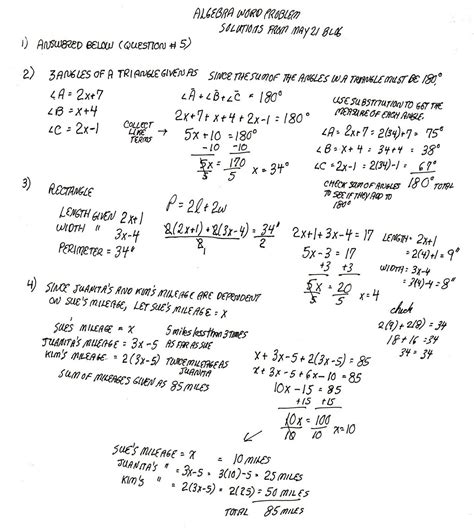 ALGEBRA WORD PROBLEM
SOLUTIONS FROM MAY 21 BLOG
1) ANSWERED BELOW (QUESTION #5)
2) 3 ANGLES OF A TRIANGLE GIVEN AS
∠A = 2x+7
∠B = x+4
∠C = 2x-1
SINCE THE SUM OF THE ANGLES IN A TRIANGLE MUST BE 180°
∠A + ∠B + ∠C = 180°
2x+7 + x+4 + 2x-1 = 180°
COLLECT LIKE TERMS → 5x+10 = 180°
-10 -10
5x = 170
5 5
x = 34°
USE SUBSTITUTION TO GET THE
MEASURE OF EACH ANGLE.
∠A = 2x+7 = 2(34)+7 = 75°
∠B = x+4 = 34+4 = 38°
∠C = 2x-1 = 2(34)-1 = 67°
CHECK SUM OF ANGLES 180° TOTAL
TO SEE IF THEY ADD TO
180°
3) RECTANGLE
LENGTH GIVEN 2x+1
WIDTH " 3x-4
PERIMETER = 34"
P = 2l + 2w
2(2x+1) + 2(3x-4) = 34
2 2
2x+1 + 3x-4 = 17
5x-3 = 17
+3 +3
5x = 20
5 5
x = 4
LENGTH = 2x+1
= 2(4)+1 = 9"
WIDTH = 3x-4
= 3(4)-4 = 8"
check
2(9) + 2(8) = 34
18 + 16 = 34
34 = 34
4) SINCE JUANITA'S AND KIM'S MILEAGE ARE DEPENDENT
ON SUE'S MILEAGE, LET SUE'S MILEAGE = x
SUE'S MILEAGE = x
JUANITA'S MILEAGE = 3x-5
5 miles less than 3 times
AS FAR AS SUE
KIM'S MILEAGE = 2(3x-5)
TWICE MILEAGE AS
JUANITA
SUM OF MILEAGES GIVEN AS
85 MILES
x + 3x-5 + 2(3x-5) = 85
x + 3x-5 + 6x-10 = 85
10x - 15 = 85
+15 +15
10x = 100
10 10
x = 10
SUE'S MILEAGE = x = 10 MILES
JUANITA'S " = 3x-5 = 3(10)-5 = 25 MILES
KIM'S " = 2(3x-5) = 2(25) = 50 MILES
TOTAL 85 MILES